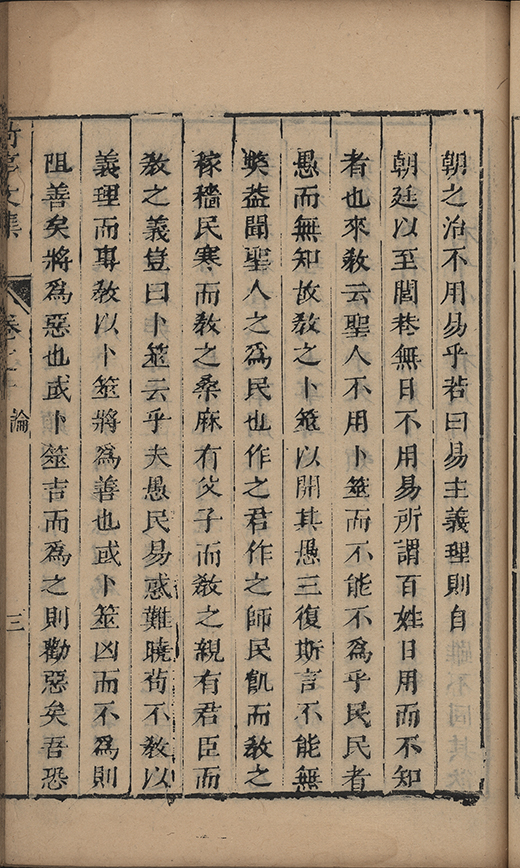 朝之治不用易乎若曰易主義理則自
朝廷以至閭巷無日不用易所謂百姓日用而不知
者也來敎云聖人不用卜筮而不能不爲乎民民者
愚而無知故敎之卜筮以開其愚三復斯言不能無
獘葢聞聖人之爲民也作之君作之師民飢而敎之
稼穡民寒而敎之桑麻有父子而敎之親有君臣而
敎之義豈曰卜筮云乎夫愚民易惑難曉苟不敎以
義理而專敎以卜筮將爲善也或卜筮凶而不爲則
阻善矣將爲惡也或卜筮吉而爲之則勸惡矣吾恐
亭文集
卷之
論
三